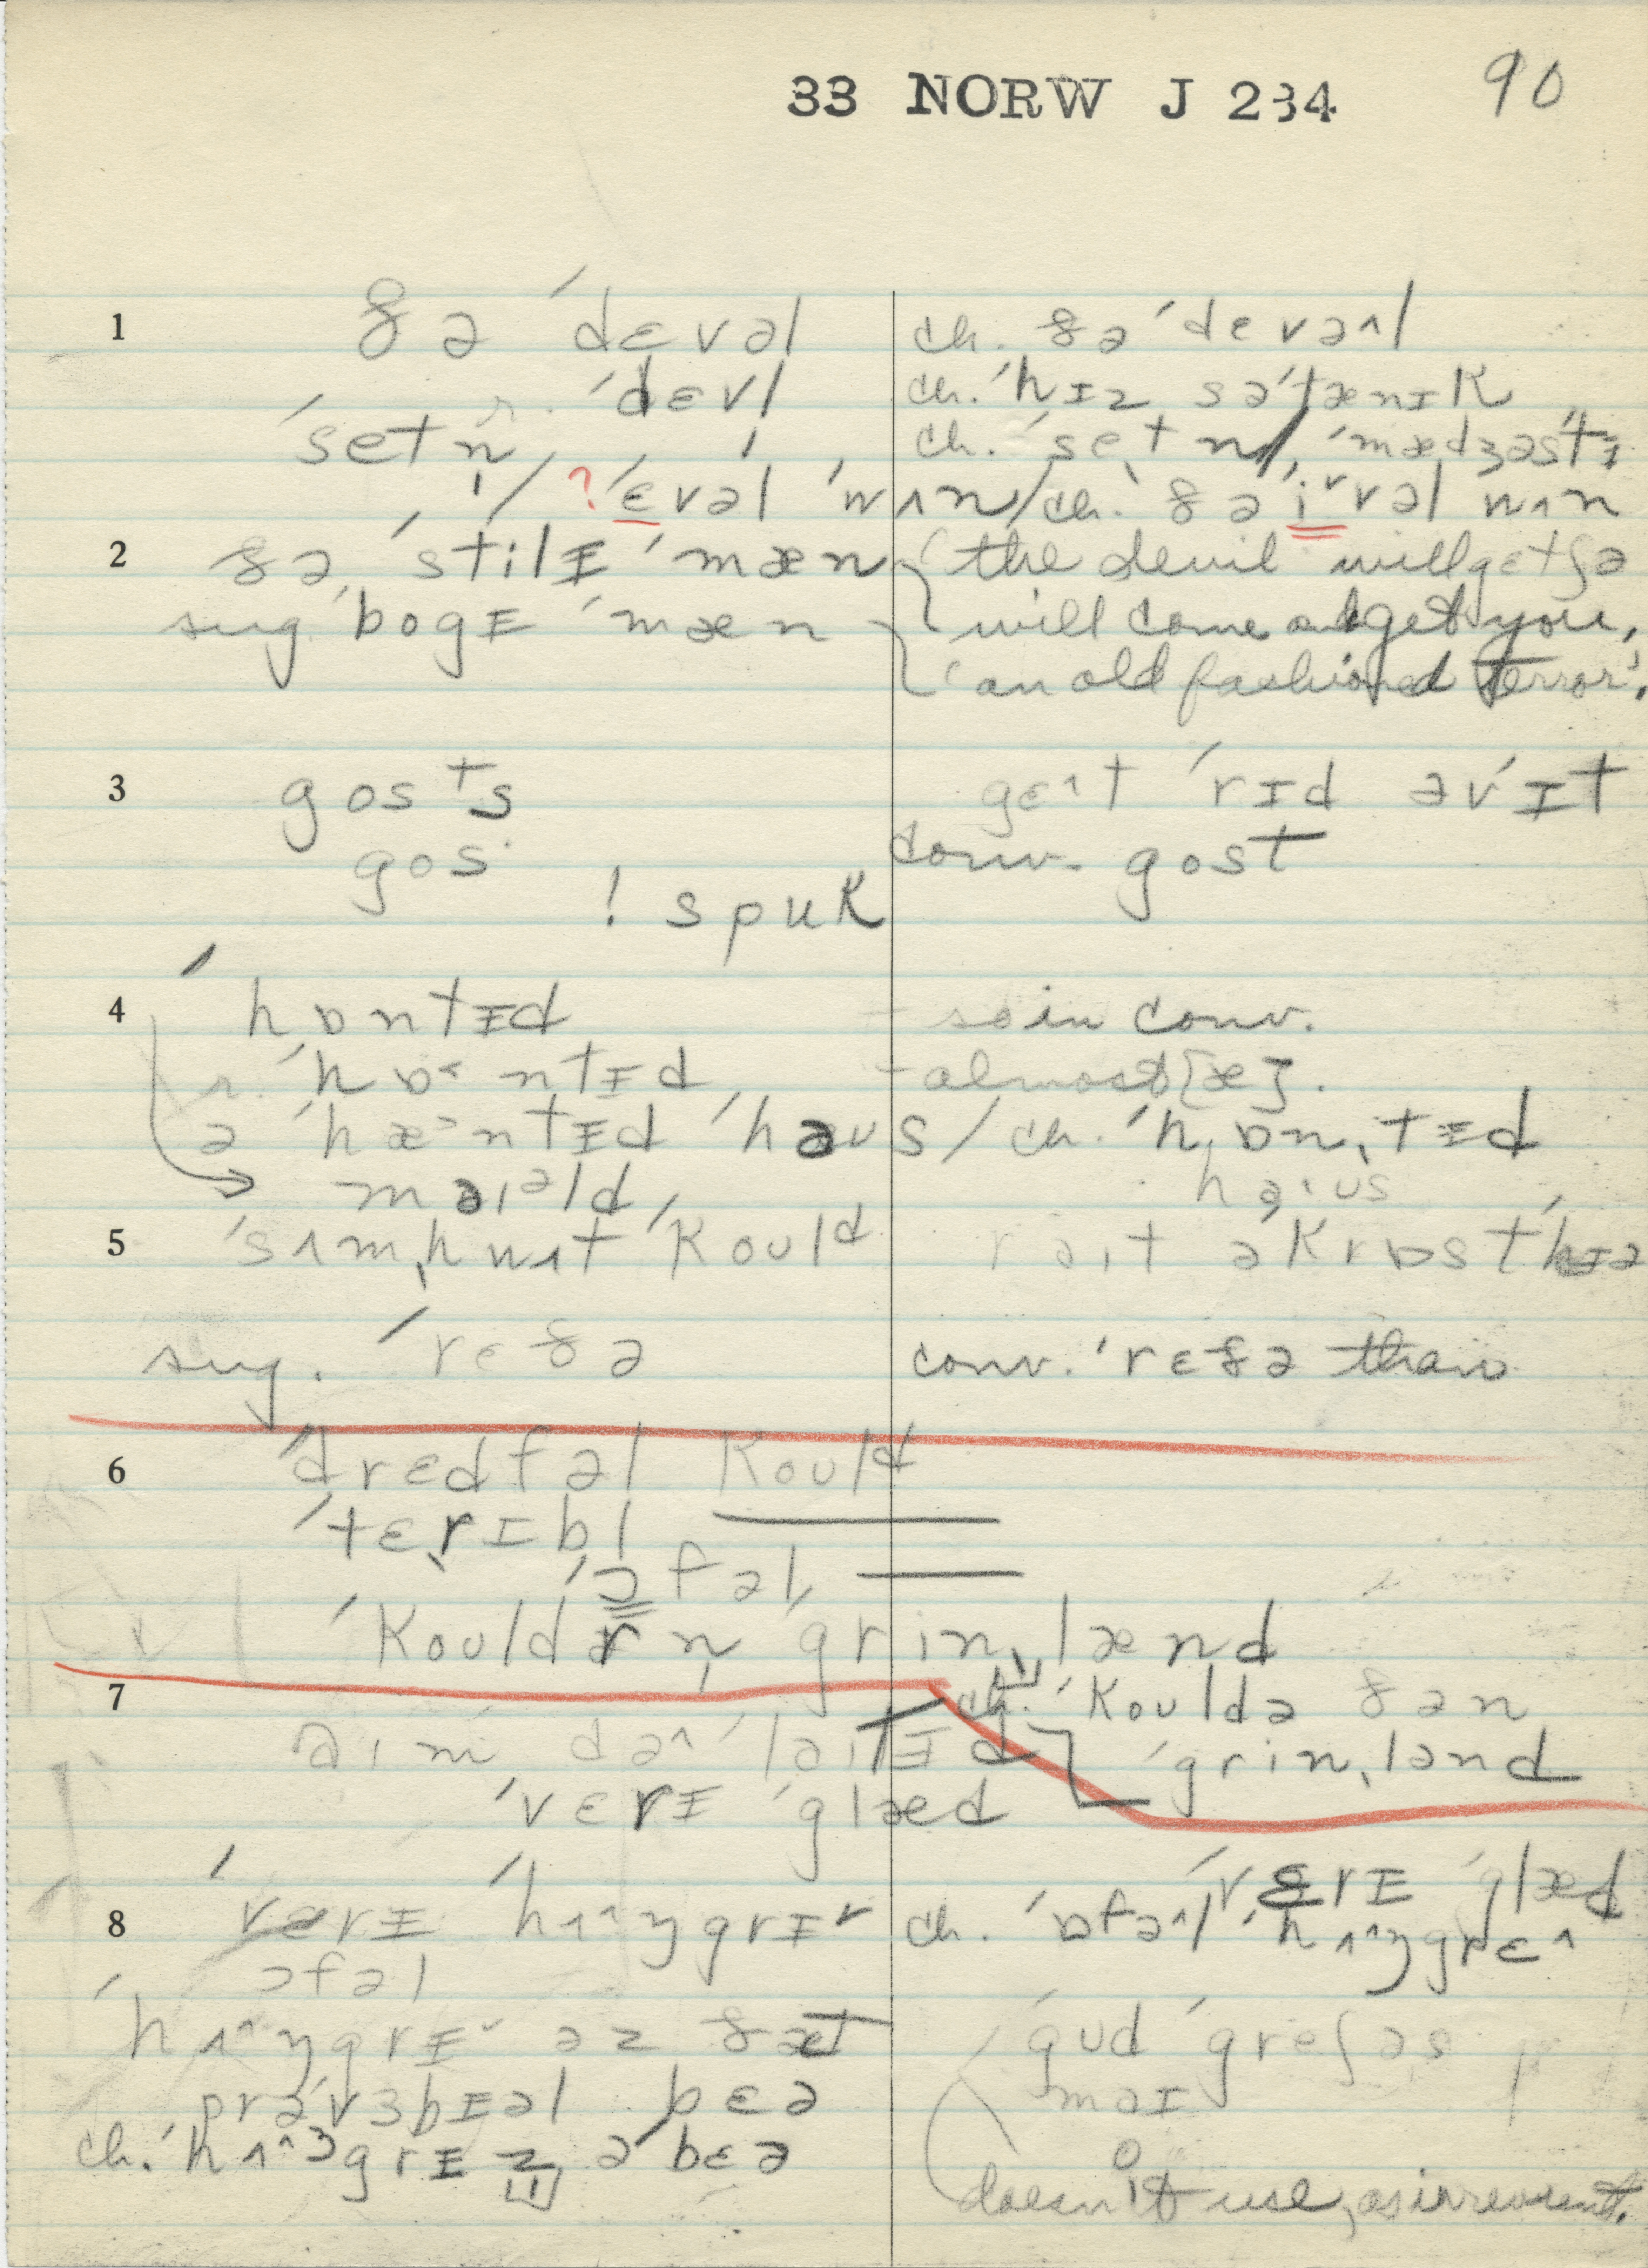 33 NORW J 234 90
1 ðə ˈdɛvəl ch. ðə ˈdɛvəʌl
r. ˈdɛvl ch. ˈhɪz səˈtænɪk
ˈsetn̩ / ch. ˈsetn̩, ˈmædʒəstɪ
? ˈɛvəl ˈwʌn / ch. ðə ˈiᵛvəl wʌn
2 ðə ˈstilɪ ˈmæn the devil will getʃə
sug. ˈbogɪ ˈmæn will come and get you,
an old fashioned terror.
3 gosᵗs gɛʌt ˈrɪd əvˈɪt
gos conv. gost
! spuk
4 ˈhɒntɪd – so in conv.
r. ˈhɒ˂ntɪd – almost [æ].
ə ˈhæ˃ntɪd ˈhəus / ch. ˈhɒnˌtɪd
məɪəld həˑus
5 ˈsʌmˌhwʌt ˈkould rəɪt əˈkrɒst ˈhɪə
sug. ˈrɛðə conv. ˈrɛðə than
6 ˈdrɛdfəl kould
ˈtɛrɪbl
ˈɔfəl
ˈkouldər n̩ ˈgrinˌlænd
7 ch. ˈkouldə ðən
əɪm dəʌˈləɪtɪd ˈgrinˌlənd
ˈvɛrɪ ˈglæd
ˈvɛrɪ ˈglæd
8 ˈvɛrɪ ˈhʌ^ŋgrɪᵛ ch. ˈɒfəʌl ˈhʌ^ŋgrɛʌ
ɔfəl
ˈhʌ^ŋgrɪᵛ əz ðæt ˈgud ˈgreʃəs
prəˈvɜbɪəl bɛə məɪ
ch. ˈhʌ^ŋgrɪ z ə ˈbɛə o
doesn't use, as irreverent.